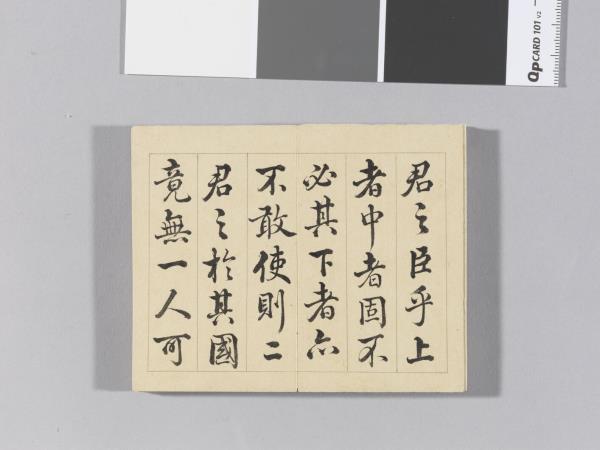 君之臣乎上
者中者固不
必其下者亦
不敢使則二
君之於其國
竟無一人可
QPCARD 101 v2